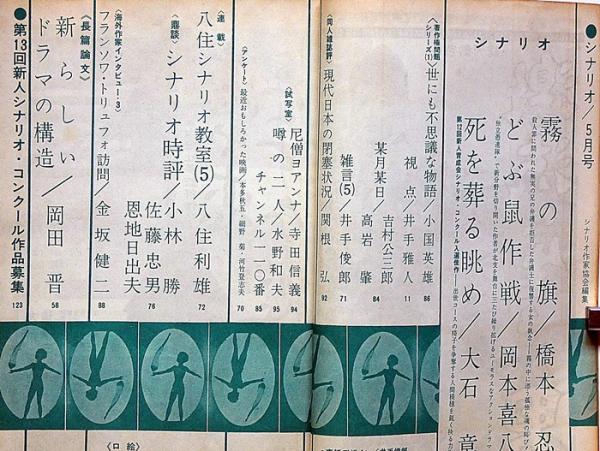 ●シナリオ/5月号
シナリオ作家協会編集
シナリオ
霧の旗/橋本忍
殺人罪に問われた無実の兄の弁護を拒否した弁護士に復讐する女の執念
どぶ鼠作戦/岡本喜八
死を葬る眺め/大石
第12回新人賞成会シナリオ・コンクール入選佳作
〈著作権問題シリーズ(1)〉世にも不思議な物語/小国英雄 86
視点/井手雅人 11
某月某日/吉村公三郎 84
高岩肇
雑言(5)/井手俊郎 71
〈同人雑誌評〉現代日本の閉塞状況/関根弘 92
〈試写室〉
尼僧ヨアンナ/寺田信義 94
噂の二人/水野和夫 95
チャンネル一一〇番 85
〈アンケート〉最近おもしろかった映画/本多秋五・細野菊・河竹登志夫 70
〈連載〉
八住シナリオ教室(5)/八住利雄 72
〈鼎談〉シナリオ時評/小林勝
佐藤忠男 76
恩地日出夫
〈海外作家インタビュー・3〉
フランソワ・トリュフォ訪問/金坂健二 88
〈長篇論文〉
新らしいドラマの構造/岡田晋 58
●第13回新人シナリオ・コンクール作品募集 123
〈口絵〉